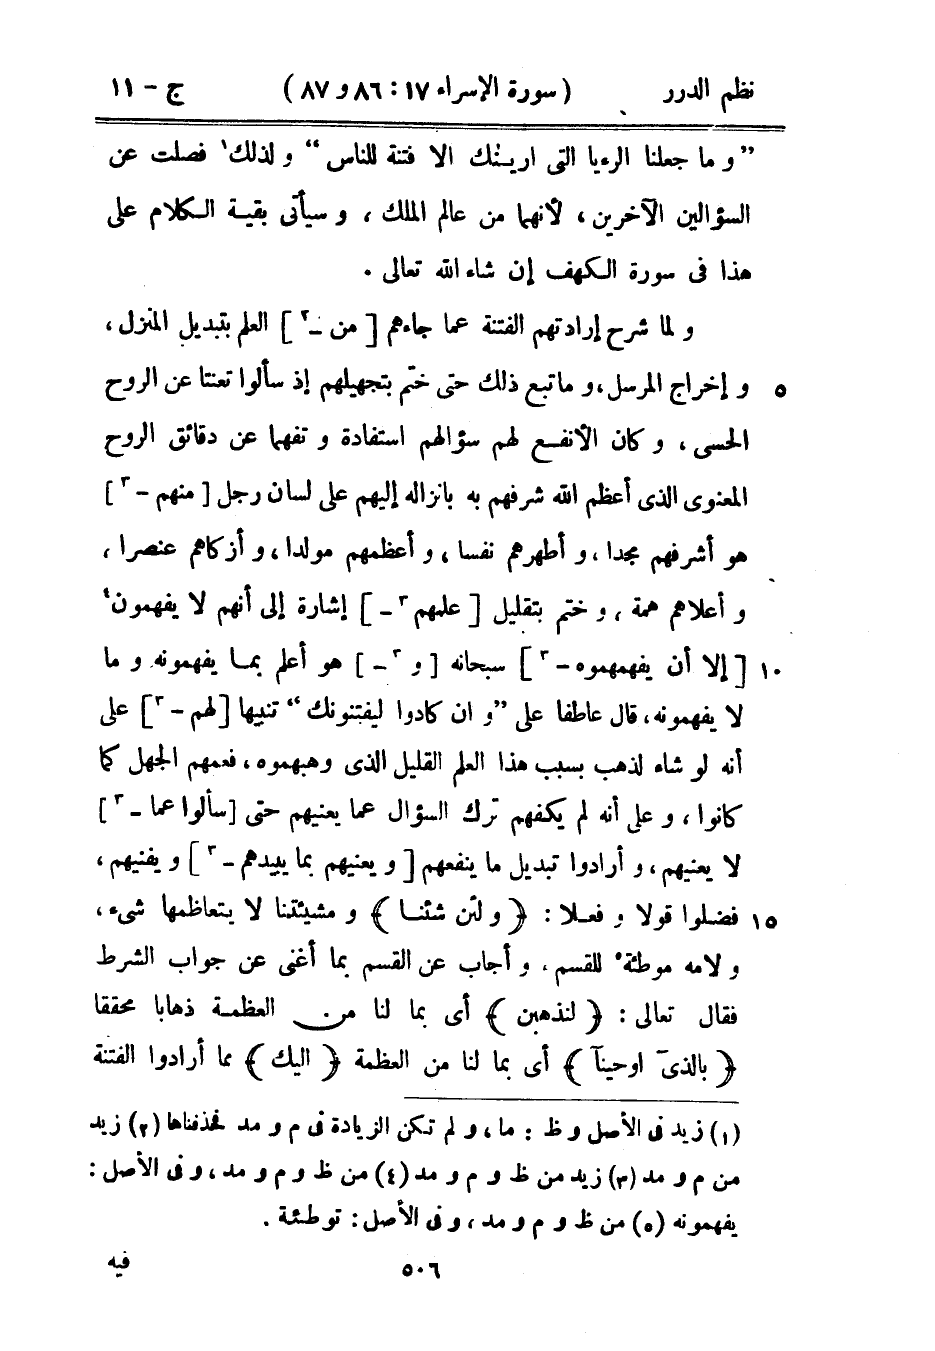 نظم الدرر (سورة الإسراء ١٧ : ٨٦ و ٨٧) ج - ١١
”و ما جعلنا الرءيا التى ارينٰك الا فتنة للناس“ و لذلك١ فصلت عن
السؤالين الآخرين، لأنهما من عالم الملك، و سيأتى بقية الكلام على
هذا فى سورة الكهف إن شاء الله تعالى .
و لما شرح إرادتهم الفتنة عما جاءهم [ من ـ٢ ] العلم بتبديل المنزل،
٥ و إخراج المرسل، و ماتبع ذلك حتى ختم بتجهيلهم إذ سألوا تعنتا عن الروح
الحسى، و كان الأنفع لهم سؤالهم استفادة و تفهما عن دقائق الروح
المعنوى الذى أعظم الله شرفهم به بانزاله إليهم على لسان رجل [ منهم - ٣ ]
هو أشرفهم مجدا، و أطهرهم نفسا، و أعظمهم مولدا، و أزكاهم عنصرا،
و أعلاهم همة، و ختم بتقليل [ علمهم ٣ - ] إشارة إلى أنهم لا يفهمون٤
١٠ [ إلا أن يفهمهموه - ٣ ] سبحانه [ و ٣ - ] هو أعلم بما يفهمونه و ما
لا يفهمونه، قال عاطفا على ”و ان كادوا ليفتنونك“ تنبيها [ لهم - ٣ ] على
أنه لو شاء لذهب بسبب هذا العلم القليل الذى وهبهموه، فعمهم الجهل كما
كانوا، و على أنه لم يكفهم ترك السؤال عما يعنيهم حتى [ سألوا عما - ٣ ]
لا يعنيهم، و أرادوا تبديل ما ينفعهم [ و يعنيهم بما يبيدهم - ٣ ] و يفنيهم،
١٥ فضلوا قولا و فعلا : ﴿ و لئن شئنا ﴾ و مشيئتنا لا يتعاظمها شىء،
و لامه موطئة٥ للقسم، و أجاب عن القسم بما أغنى عن جواب الشرط
فقال تعالى : ﴿ لنذهبن ﴾ أى بما لنا من العظمة ذهابا محققا
﴿ بالذىٓ اوحينآ ﴾ أى بما لنا من العظمة ﴿ اليك ﴾ مما أرادوا الفتنة
(١) زيد فى الأصل و ظ : ما، و لم تكن الزيادة فى م و مد فحذفناها (٢) زيد
من م و مد (٣) زيد من ظ و م و مد (٤) من ظ و م و مد، و فى الأصل :
يفهمونه (٥) من ظ و م و مد، و فى الأصل : توطئة .
٥٠٦ فيه